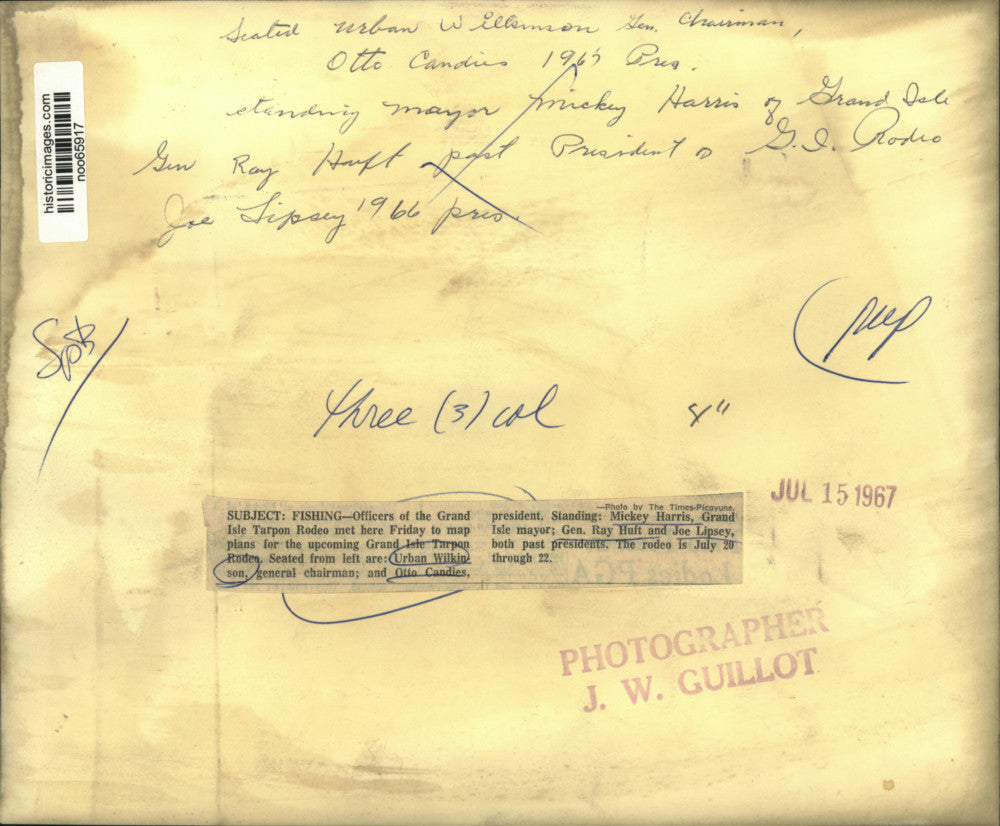 Seated Urban Wilkinson Gen. Chairman,
Otto Candies 1967 Pres.
standing mayor Mickey Harris of Grand Isle
Gen Ray Hufft past President G. I. Rodeo
Joe Lipsey 1966 pres.
historicimages.com
noo65917
Spts
three (3) col
JUL 15 1967
SUBJECT: FISHING—Officers of the Grand
Isle Tarpon Rodeo met here Friday to map
plans for the upcoming Grand Isle Tarpon
Rodeo. Seated from left are: Urban Wilkin-
son, general chairman; and Otto Candies,
—Photo by The Times-Picayune.
president. Standing: Mickey Harris, Grand
Isle mayor; Gen. Ray Huft and Joe Lipsey,
both past presidents. The rodeo is July 20
through 22.
PHOTOGRAPHER
J. W. GUILLOT